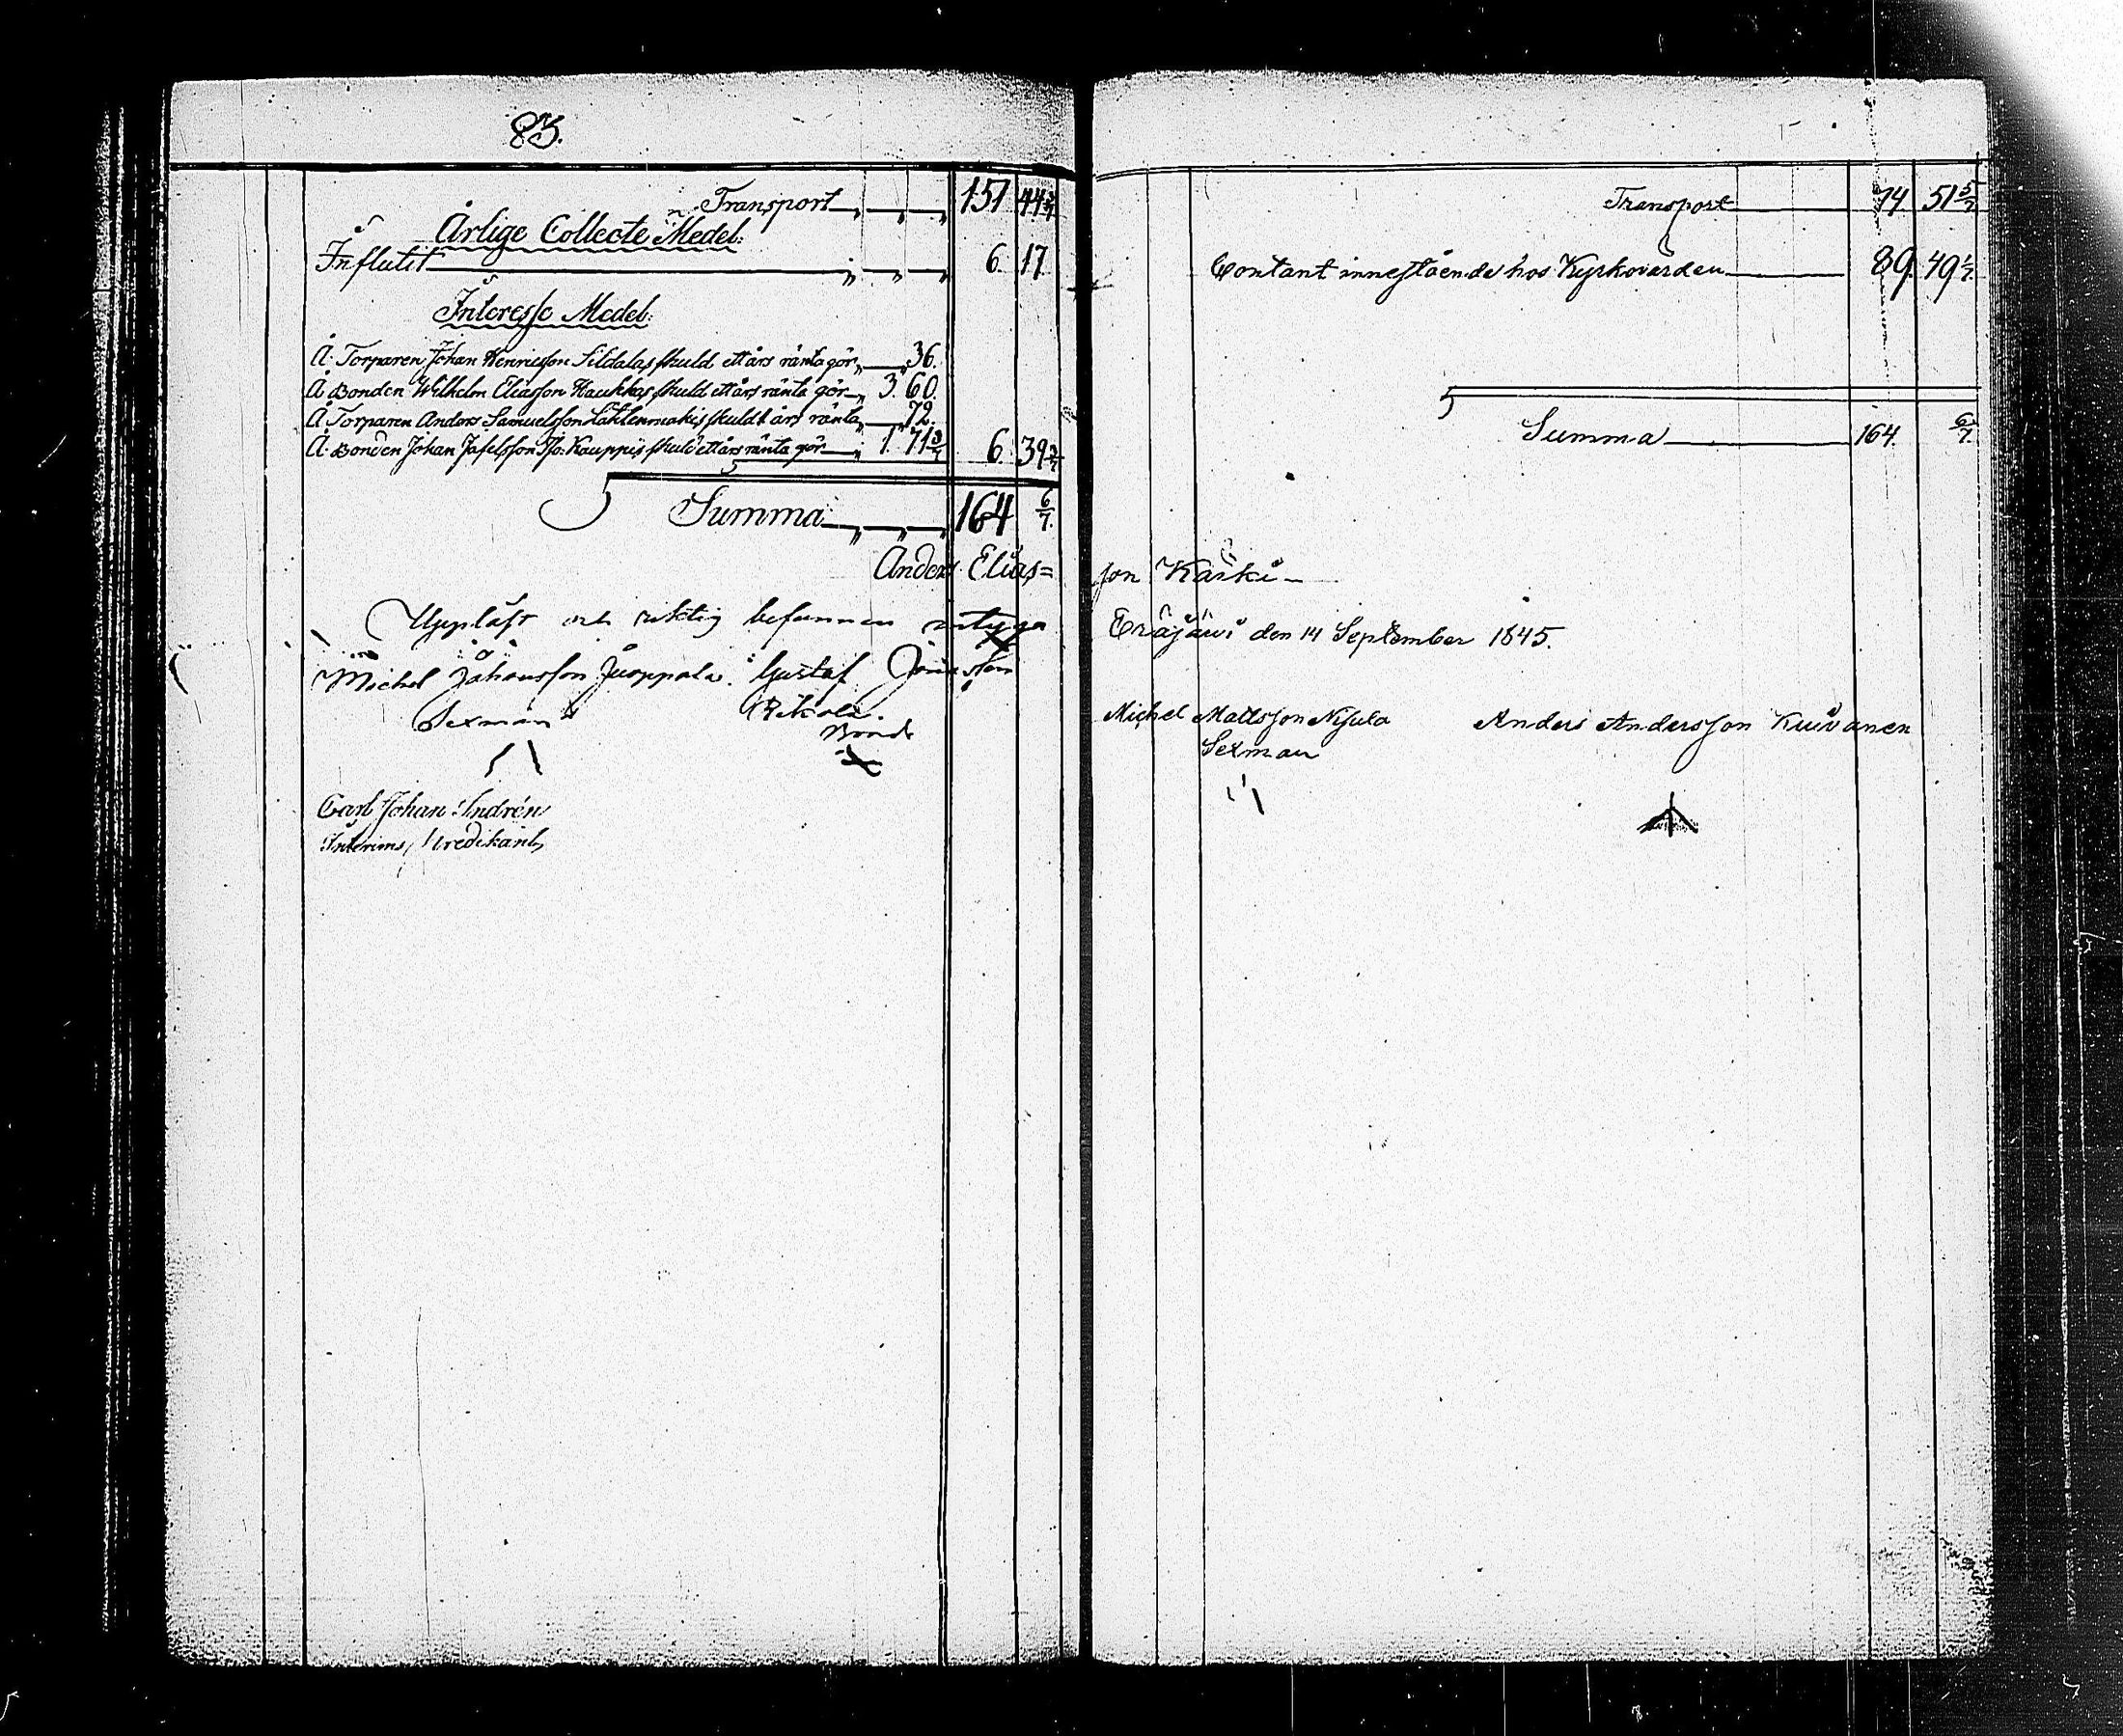 83.
Transport 151 44 3/7
Årlige Collecte Medel:
Influtit 6. 17
Interesse Medel:
Å Torparen Johan Henricsson Sildalas skuld ett års ränta gör 36.
Å Bonden Wilhelm Eliasson Haukkas skuld ett års ränta gör 3. 60.
Å Torparen Anders Samuelsson Lähtenmäkis skuld 1 års ränta 72.
Å Bonden Johan Josefsson Iso-Kauppis skuld ett års ränta gör 1. 71 3/7 6. 39 3/7
Summa 164 6/7.
Anders Elias=
Uppläst och riktig befunnen intyga
Michel Johansson Juoppala. Gustaf
Sexman
Bonde
Carl Johan Indrén
Interims Predikant,
Transport 74 51 5/7
Contant innestående hos Kyrkovärden 89. 49 1/7.
Summa 164. 6/7.
son Käski
Eräjärvi den 14 September 1845.
Michel Mattsson Nisula Anders Andersson Kuivanen
Sexman